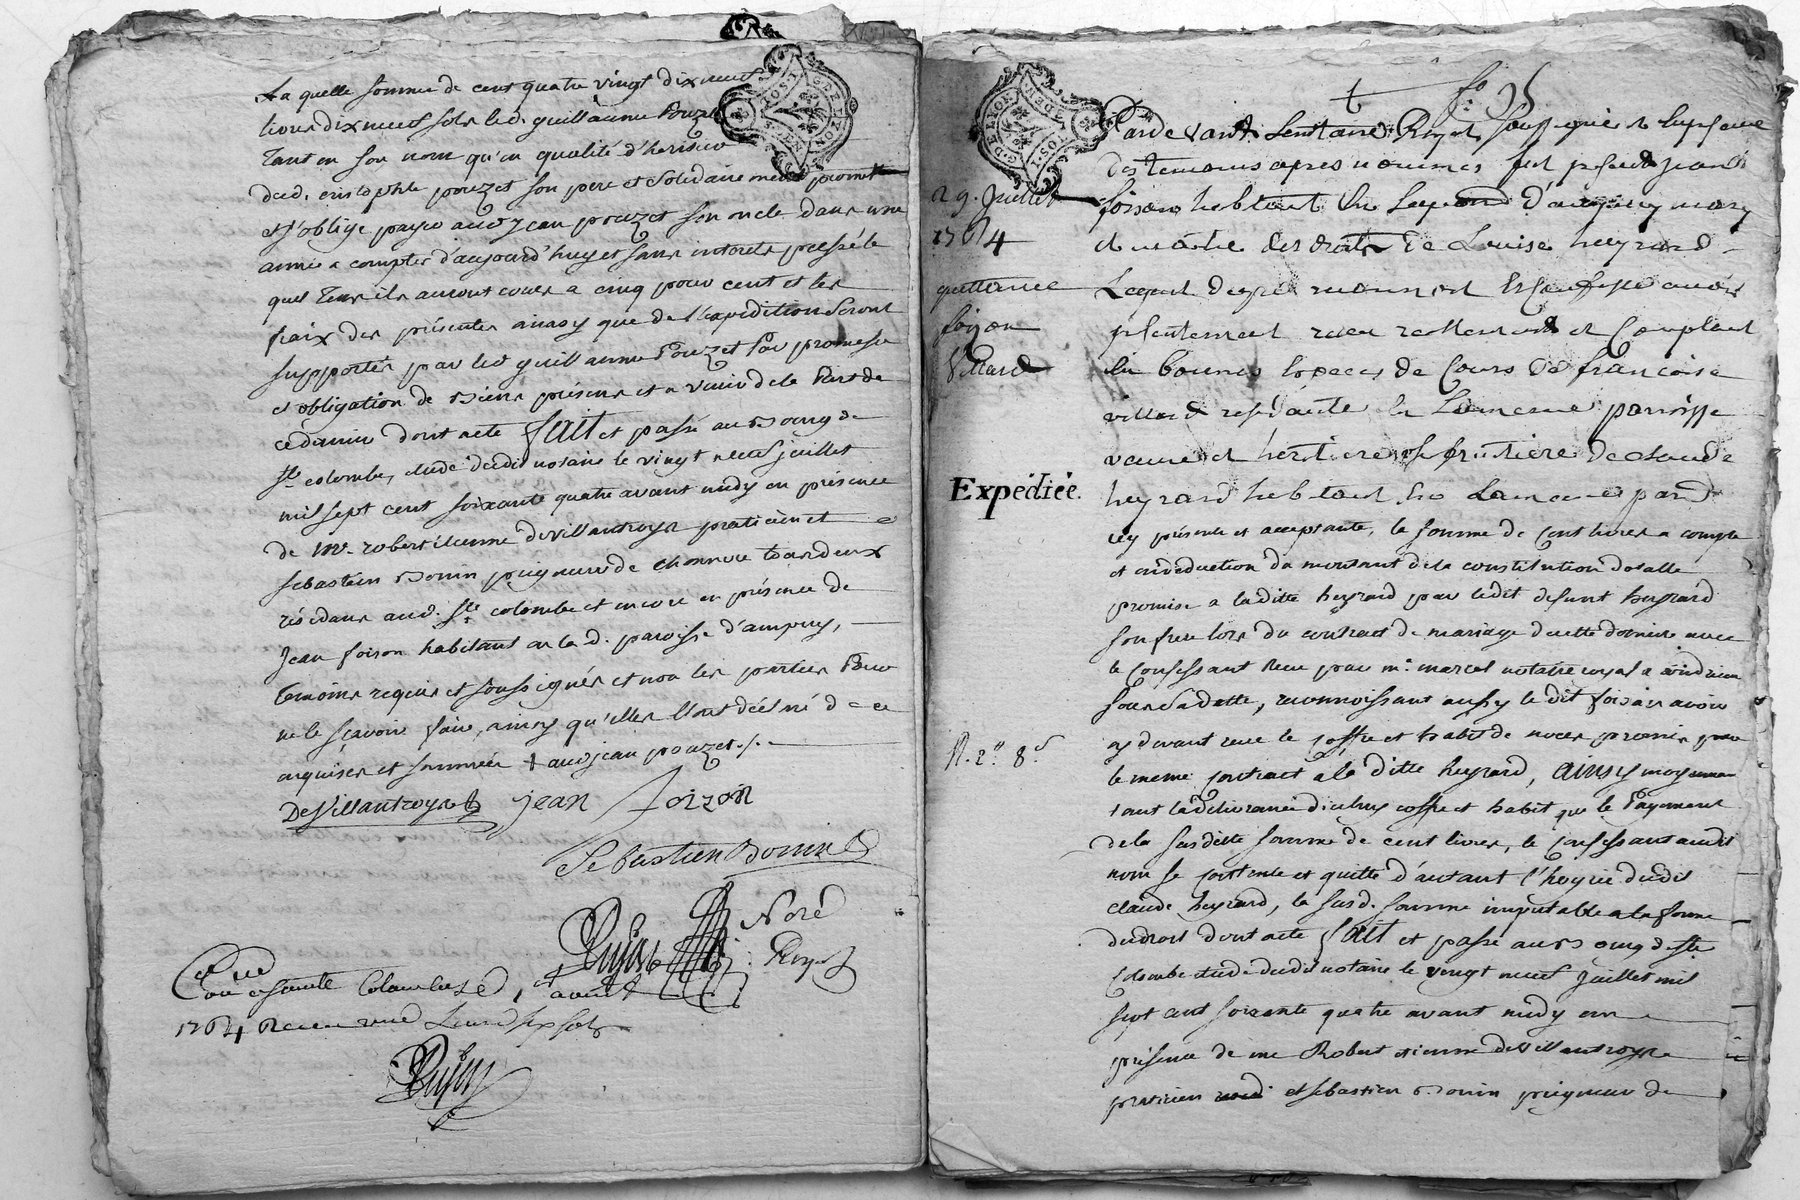 La quelle somme de cent quatre vingt dix neuf
livres dix neuf sols led. guillaume Pouzet
tant en son nom qu'en qualité d'heritier
dud. cristophle pouzet son pere et solidairement promet
et s'oblige payer aud. jean pouzet son oncle dans une
année a compter d'aujourd'huy et sans interets passé le
quel tems ils auront cours a cinq pour cent et les
fraix des présentes ainsy que de l'expedition seront
supportés par led. guillaume Pouzet Par promesse
et obligation de biens présens et a venir de la Part de
ce dernier dont acte fait et passé au bourg de
Ste colombe, étude dudit notaire le vingt neuf juillet
mil sept cent soixante quatre avant midy en présence
de mr. robert étienne devillantroys praticien et
sebastien bonin peigneur de chanvre touts deux
résidans aud. Ste colombe et encore en présence de
jean foison habitant en la d. paroisse d'ampuis,
temoins requis et soussignés et non les parties Pour
ne le sçavoir faire, ainsy qu'elles l'ont déclaré de ce
enquises et sommées † aud jean pouzet ./.
DeVillantroys jean foizon
Sebastien Bonin
Pujos Noré
Royal
Controllé a Sainte Colombe le août
1764 Reçu
Pujos
f.
Pardevant le notaire Royal soussigné et en presence
des temoins apres nommés fut present jean
foison habitant en la d'ampuis mary
et maitre des droits de Louise heyrard
Lequel de gré reconnoit et confesse avoir
presentement reçu reellement et comptant
en bonnes especes de cours de françoise
villard residante a paroisse
veuve et heritiere de claude
heyrard habitant
icy présente et acceptante, la somme de cent livres a compte
et en déduction du montant de la constitution dotalle
promise a laditte heyrard par ledit defunt heyrard
son frere lors du contract de mariage de cette derniere avec
le confessant Reçu par me. marcel notaire royal a condrieu
sous sa datte, reconnoissant aussy le dit foison avoir
cy devant reçu le coffre et habit de noces promis par
le meme contract a la ditte heyrard, ainsy moyennant
tant la délivrance d'iceluy coffre et habit que le Payement
de la susditte somme de cent livres, le confessant audit
nom se contente et quitte d'autant l'hoyrie dudit
claude heyrard, la susd. somme imputable a la forme
du droit dont acte fait et passé au bourg de Ste
Colombe étude dudit notaire le vingt neuf Juillet mil
sept cent soixante quatre avant midy en
présence de me Robert etienne deVillantroys
praticien et sebastien bonin peigneur de
29. Juillet
1764
quittance
foizon
Villard
Expédiée.
R. 2tt 8s